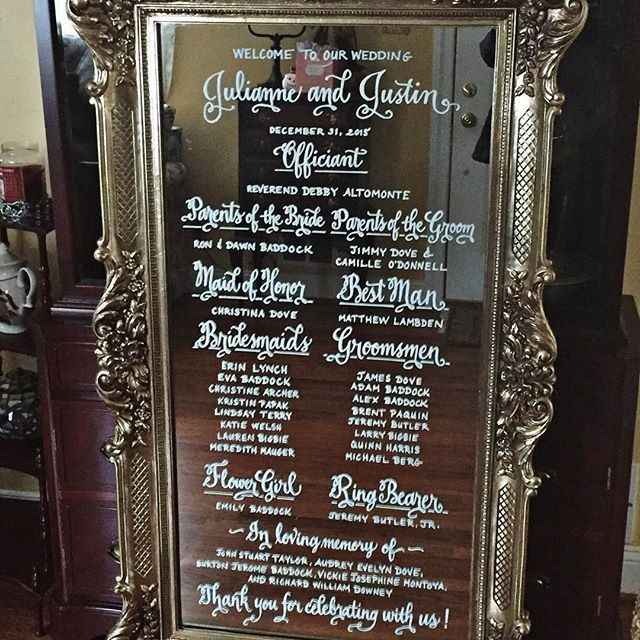 WELCOME TO OUR WEDDING
Julianne and Justin
DECEMBER 31, 2015
Officiant
REVEREND DEBBY ALTOMONTE
Parents of the Bride Parents of the Groom
RON & DAWN BADDOCK
JIMMY DOVE &
CAMILLE O'DONNELL
Maid of Honor
CHRISTINA DOVE
Best Man
MATTHEW LAMBDEN
Bridesmaids
ERIN LYNCH
EVA BADDOCK
CHRISTINE ARCHER
KRISTIN PAPAK
LINDSAY TERRY
KATIE WELSH
LAUREN BIGBIE
MEREDITH MAUGER
Groomsmen
JAMES DOVE
ADAM BADDOCK
ALEX BADDOCK
BRENT PAQUIN
JEREMY BUTLER
LARRY BIGBIE
QUINN HARRIS
MICHAEL BERG
Flower Girl
EMILY BADDOCK
Ring Bearer
JEREMY BUTLER, JR.
~ In loving memory of ~
JOHN STUART TAYLOR, AUDREY EVELYN DOVE,
BURTON JEROME BADDOCK, VICKIE JOSEPHINE MONTOYA,
AND RICHARD WILLIAM DOWNEY
Thank you for celebrating with us!